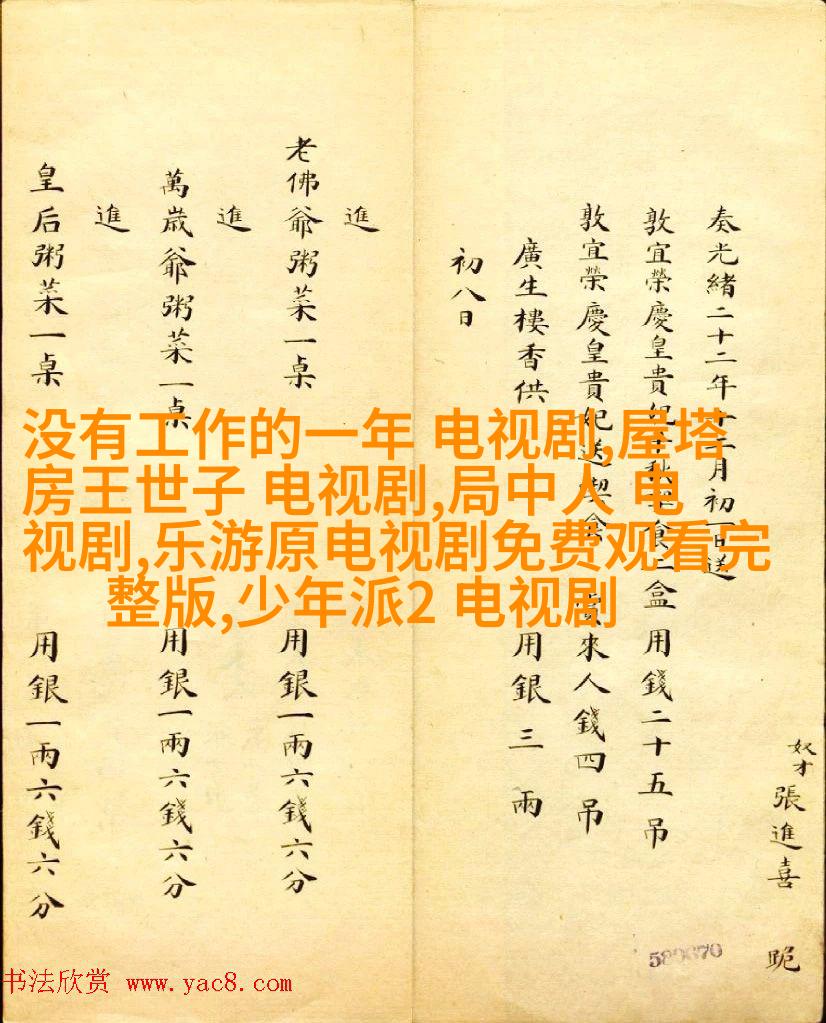 奴才張進喜 跪
奏光緒二十二年十二月初一日送
敦宜榮慶皇貴妃 盒用錢二十五吊
敦宜榮慶皇貴妃送 來人錢四吊
廣生樓香供 用銀三兩
初八日
進
老佛爺粥菜一桌 用銀一兩六錢六分
進
萬歲爺粥菜一桌 用銀一兩六錢六分
進
皇后粥菜一桌 用銀一兩六錢六分
没有工作的一年 电视剧,屋塔
房王世子 电视剧,局中人 电
视剧,乐游原电视剧免费观看完
整版,少年派2 电视剧
书法欣赏 www.yac8.com